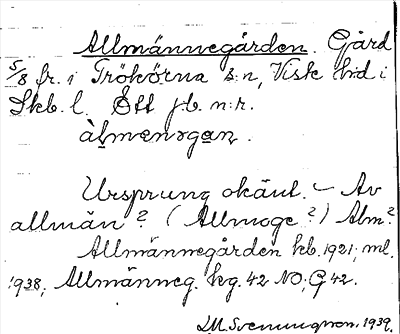 Allmännegården. Gård
5/8 fr. i Trökörna s:n, Viste hd i
Skb. l. Ett jb. n:r.
àlmenogan.
Ursprung okänt. – Av
allmän? (Allmoge?) Alm?
Allmännegården kb. 1921; ml.
1938; Allmänneg. kg. 42 NO; G 42.
1939.